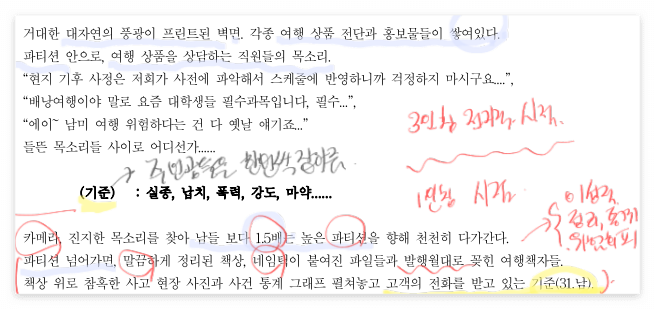 거대한 대자연의 풍광이 프린트된 벽면. 각종 여행 상품 전단과 홍보물들이 쌓여있다.
파티션 안으로, 여행 상품을 상담하는 직원들의 목소리.
“현지 기후 사정은 저희가 사전에 파악해서 스케줄에 반영하니까 걱정하지 마시구요....”,
“배낭여행이야 말로 요즘 대학생들 필수과목입니다, 필수...”,
“에이~ 남미 여행 위험하다는 건 다 옛날 얘기죠...”
3인칭 전지적 시점.
들뜬 목소리들 사이로 어디선가......
→ 주인공들은 한만싹
1인칭 시점
(기준) : 실종, 납치, 폭력, 강도, 마약......
이성적
정리,
카메라, 진지한 목소리를 찾아 남들 보다 1.5배는 높은 파티션을 향해 천천히 다가간다.
파티션 넘어가면, 말끔하게 정리된 책상, 네임택이 붙여진 파일들과 발행월대로 꽂힌 여행책자들.
책상 위로 참혹한 사고 현장 사진과 사건 통계 그래프 펼쳐놓고 고객의 전화를 받고 있는 기준(31.남).